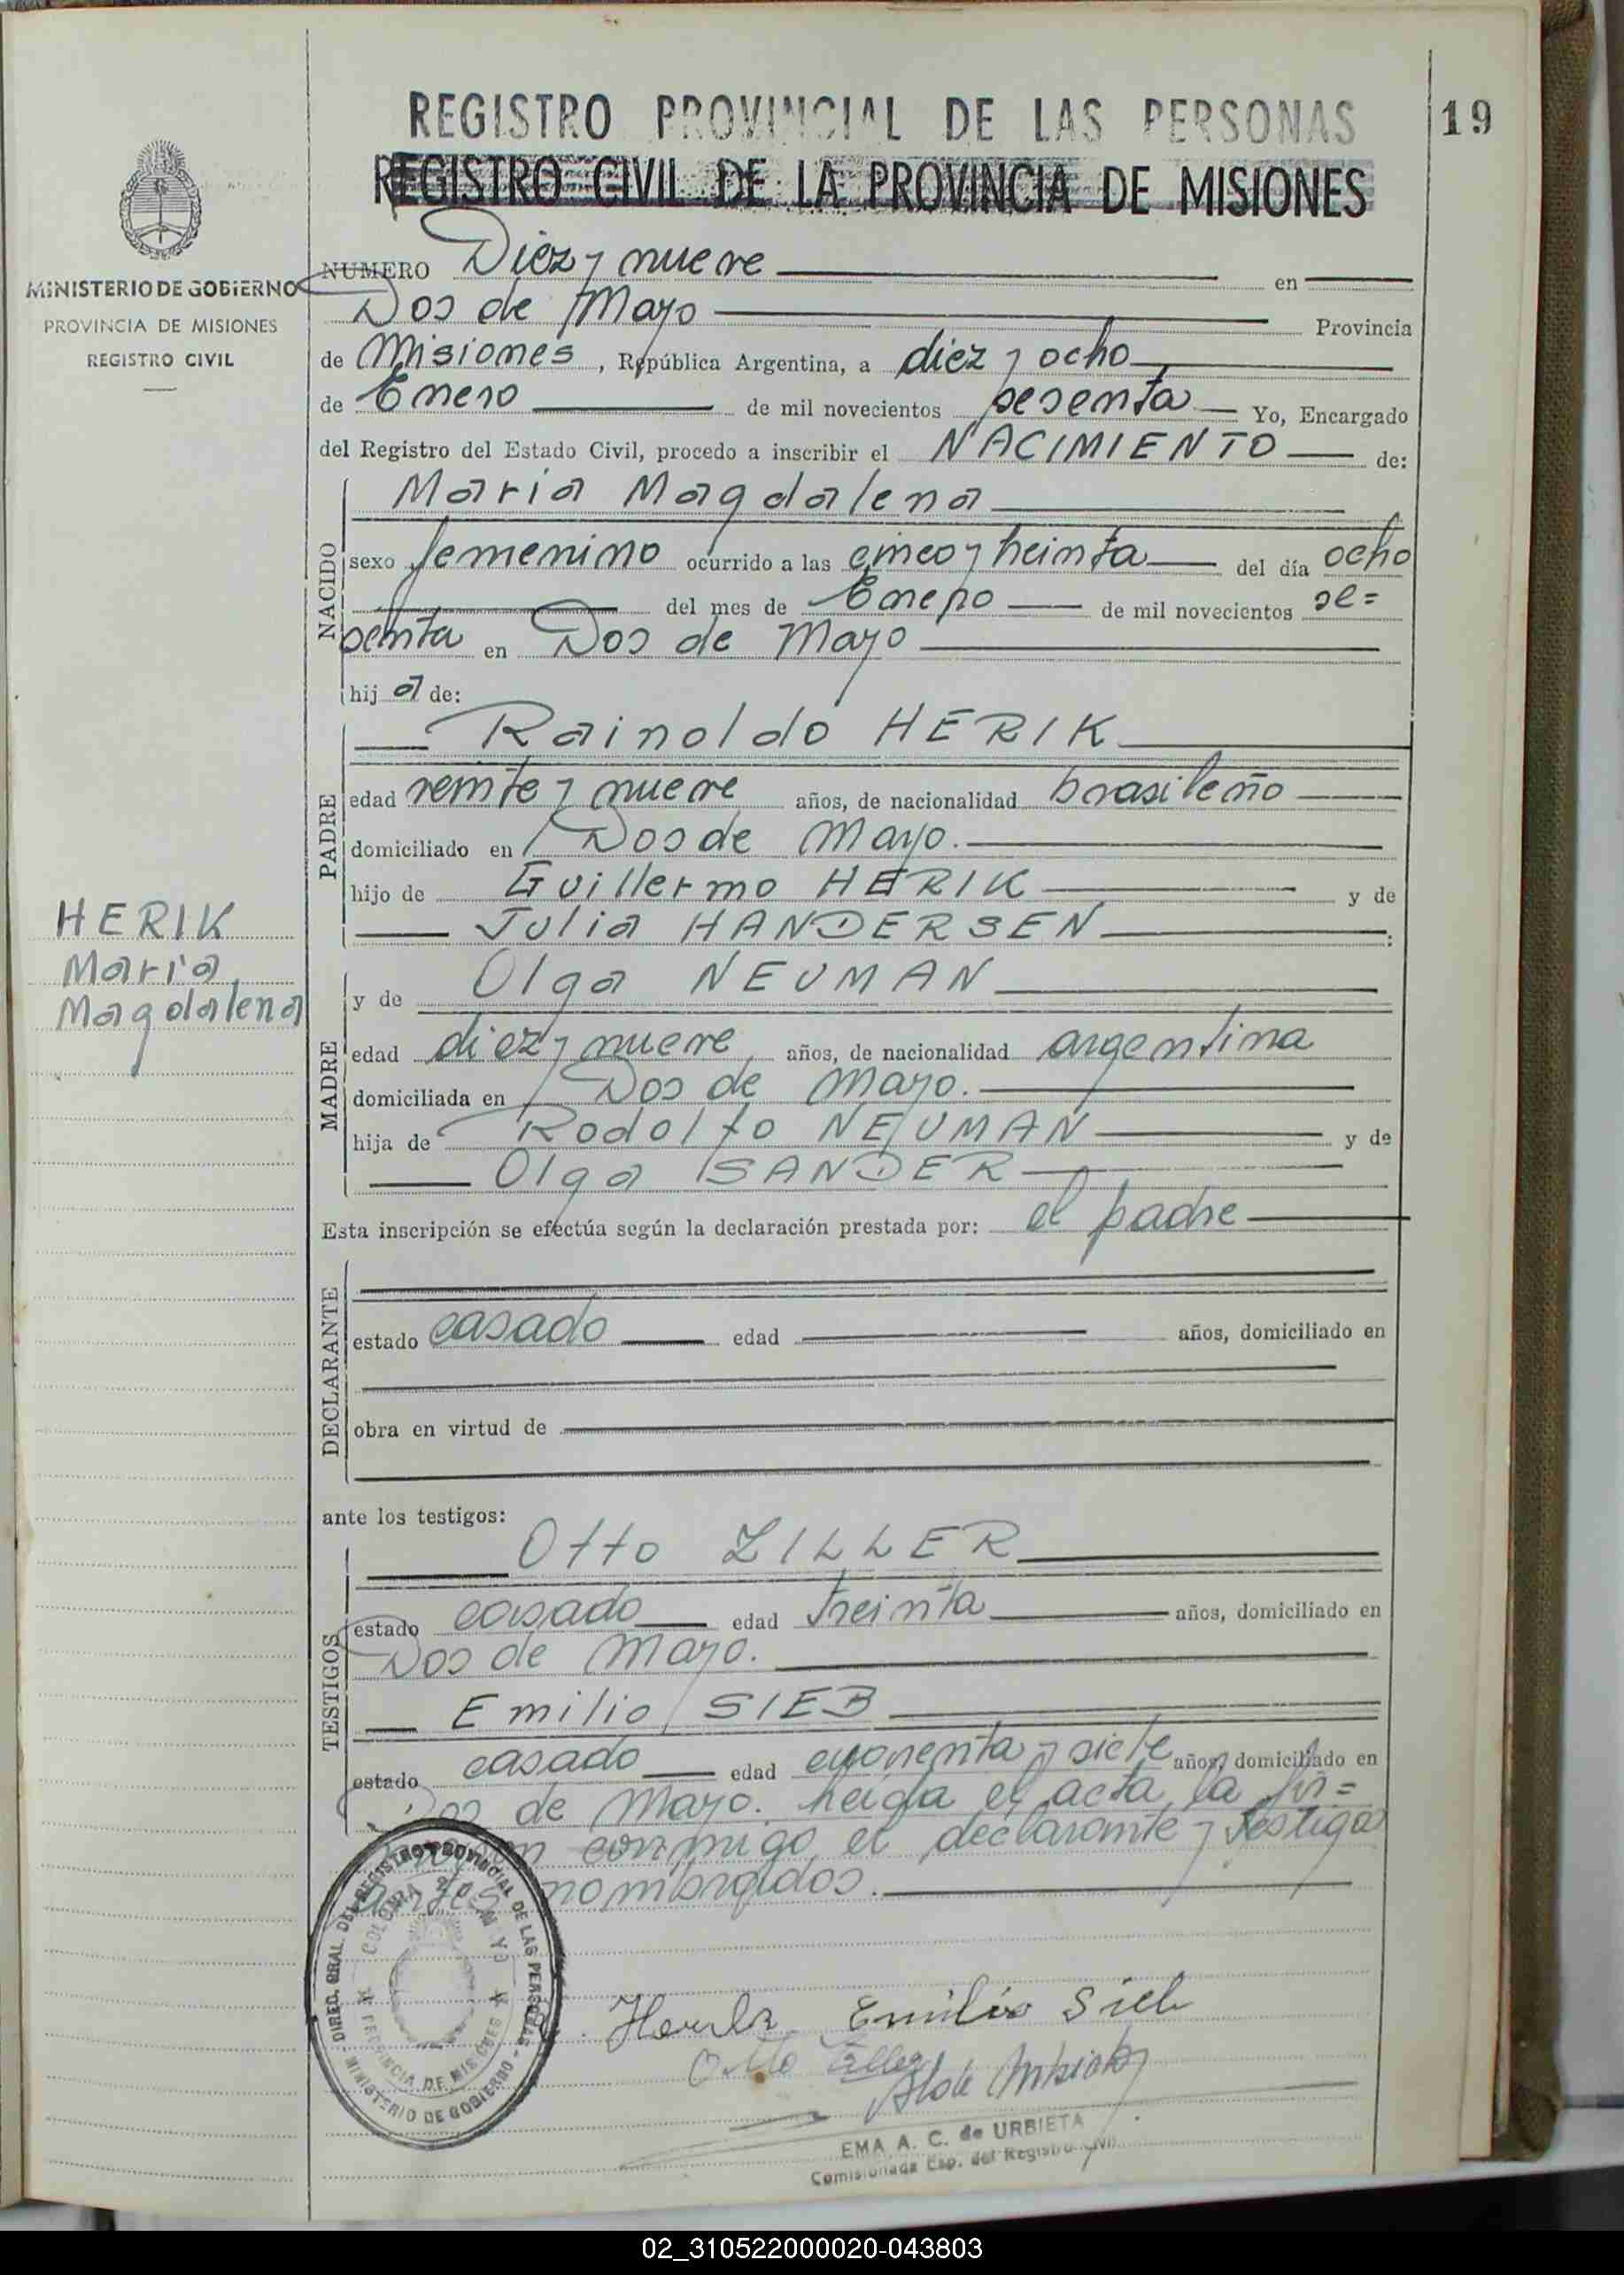 REGISTRO PROVINCIAL DE LAS PERSONAS
19
REGISTRO CIVIL DE LA PROVINCIA DE MISIONES
MINISTERIO DE GOBIERNO
PROVINCIA DE MISIONES
REGISTRO CIVIL
NUMERO Diez y nueve en
Dos de Mayo Provincia
de Misiones, República Argentina, a diez y ocho
de Enero de mil novecientos sesenta Yo, Encargado
del Registro del Estado Civil, procedo a inscribir el NACIMIENTO de:
NACIDO
Maria Magdalena
sexo femenino ocurrido a las cinco y treinta del día ocho
del mes de Enero de mil novecientos se=
senta en Dos de Mayo
hij a de:
PADRE
Rainoldo HERIK
edad veinte y nueve años, de nacionalidad brasileño
domiciliado en Dos de Mayo.
hijo de Guillermo HERIK y de
Julia HANDERSEN :
HERIK
Maria
Magdalena
MADRE
y de Olga NEUMAN
edad diez y nueve años, de nacionalidad argentina
domiciliada en Dos de Mayo.
hija de Rodolfo NEUMAN y de
Olga SANDER
Esta inscripción se efectúa según la declaración prestada por: el padre
DECLARANTE
estado casado edad años, domiciliado en
obra en virtud de
ante los testigos:
TESTIGOS
Otto ZILLER
estado casado edad treinta años, domiciliado en
Dos de Mayo.
Emilio SIEB
estado casado edad cuarenta y siete años, domiciliado en
Dos de Mayo. Leida el acta, la fir=
conmigo el declarante y testigos
antes nombrados.
DIREC. GRAL. DEL REGISTRO PROVINCIAL DE LAS PERSONAS
MINISTERIO DE GOBIERNO
COLONIA 2 DE MAYO
PROVINCIA DE MISIONES
Emilio Sieb
Otto Ziller
EMA A. C. de URBIETA
Comisionada Esp. del Registro Civil
02_310522000020-043803